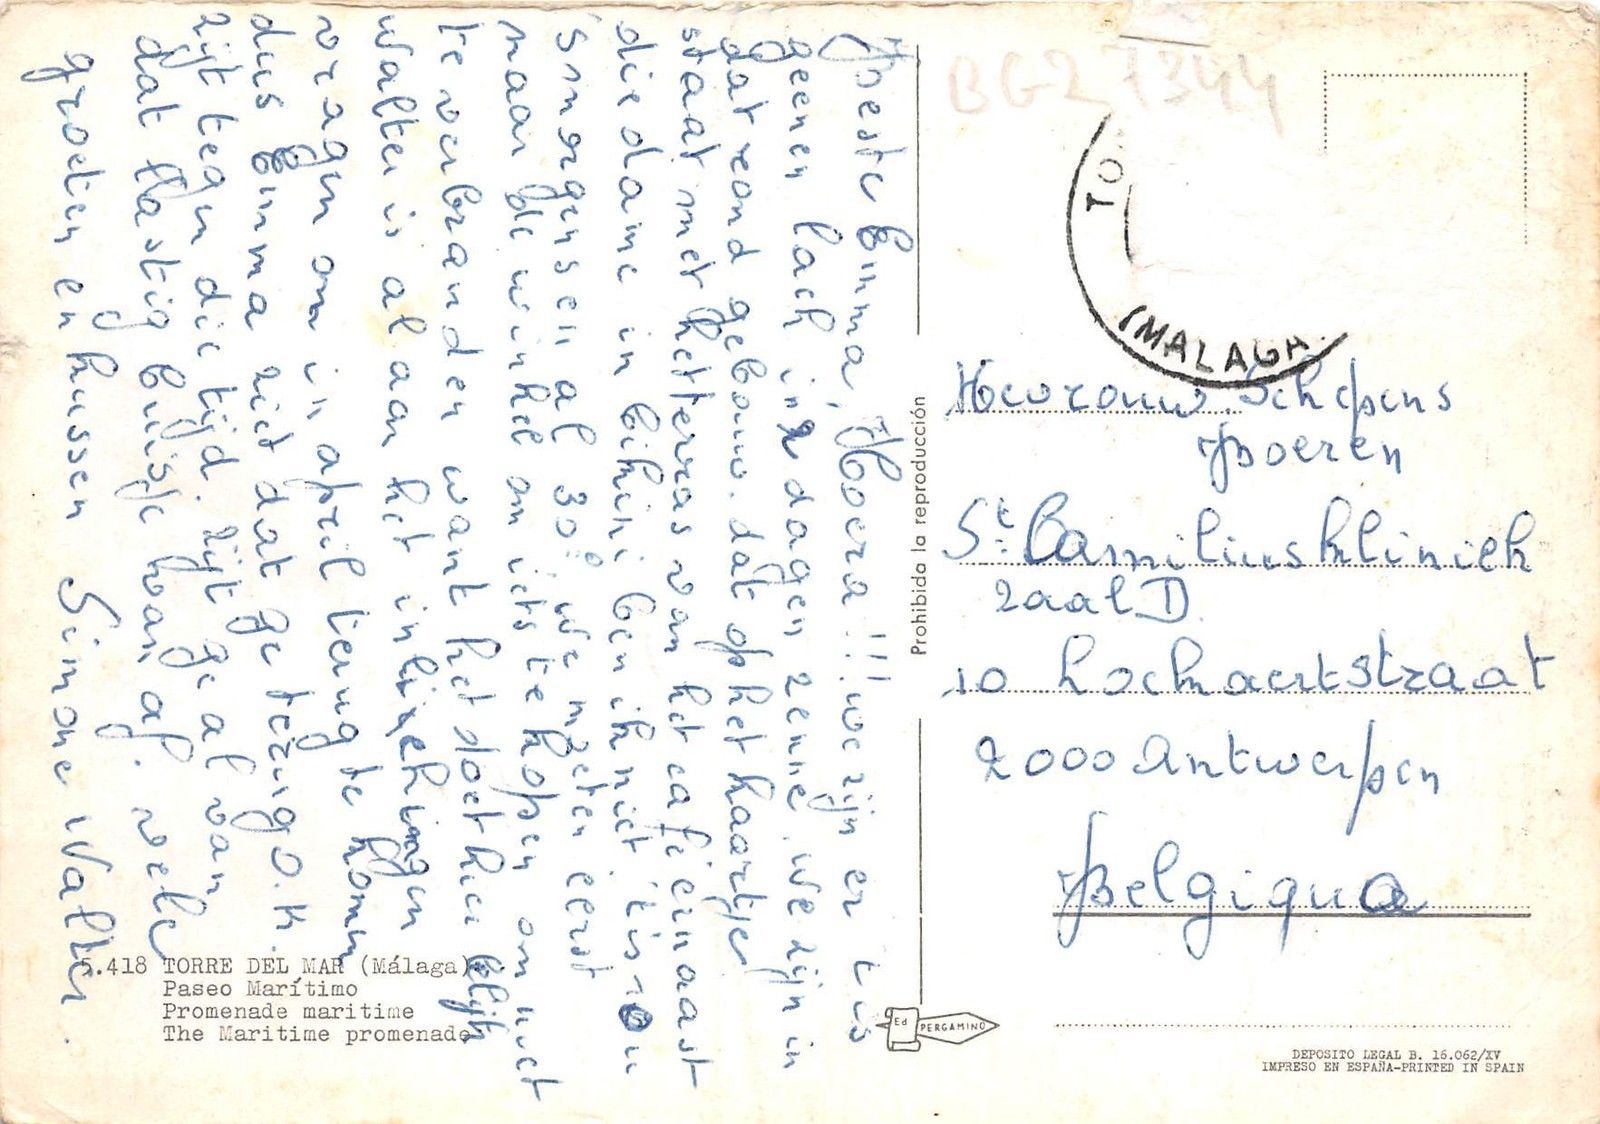 Beste Emma, Hoera!!! we zijn er t is
geenen lach in 2 dagen zenne. we zijn in
dat rond gebouw. dat op het kaartje
staat met het terras van het café ernaast
die dame in bikini ben ik niet t is nou
smorgens al 30° we moeten eerst
naar de winkel om iets te kopen om niet
te verbranden want het doet hier blijk
Walter is al aan het inlichtingen
vragen om in april terug te komen
dus Emma ziet dat ge terug O.K.
zijt tegen die tijd. zijt ge al van
dat lastig buisje van af. vele
groeten en kussen Simone Walter.
5.418 TORRE DEL MAR (Málaga)
Paseo Marítimo
Promenade maritime
The Maritime promenade
Prohibida la reproducción
Ed PERGAMINO
BG2 7344
TO
(MALAGA
Mevrouw Schepens
Boeren
St. Camilius kliniek
zaal D.
10 Lockaertstraat
2000 Antwerpen
Belgique
DEPOSITO LEGAL B. 16.062/XV
IMPRESO EN ESPAÑA-PRINTED IN SPAIN